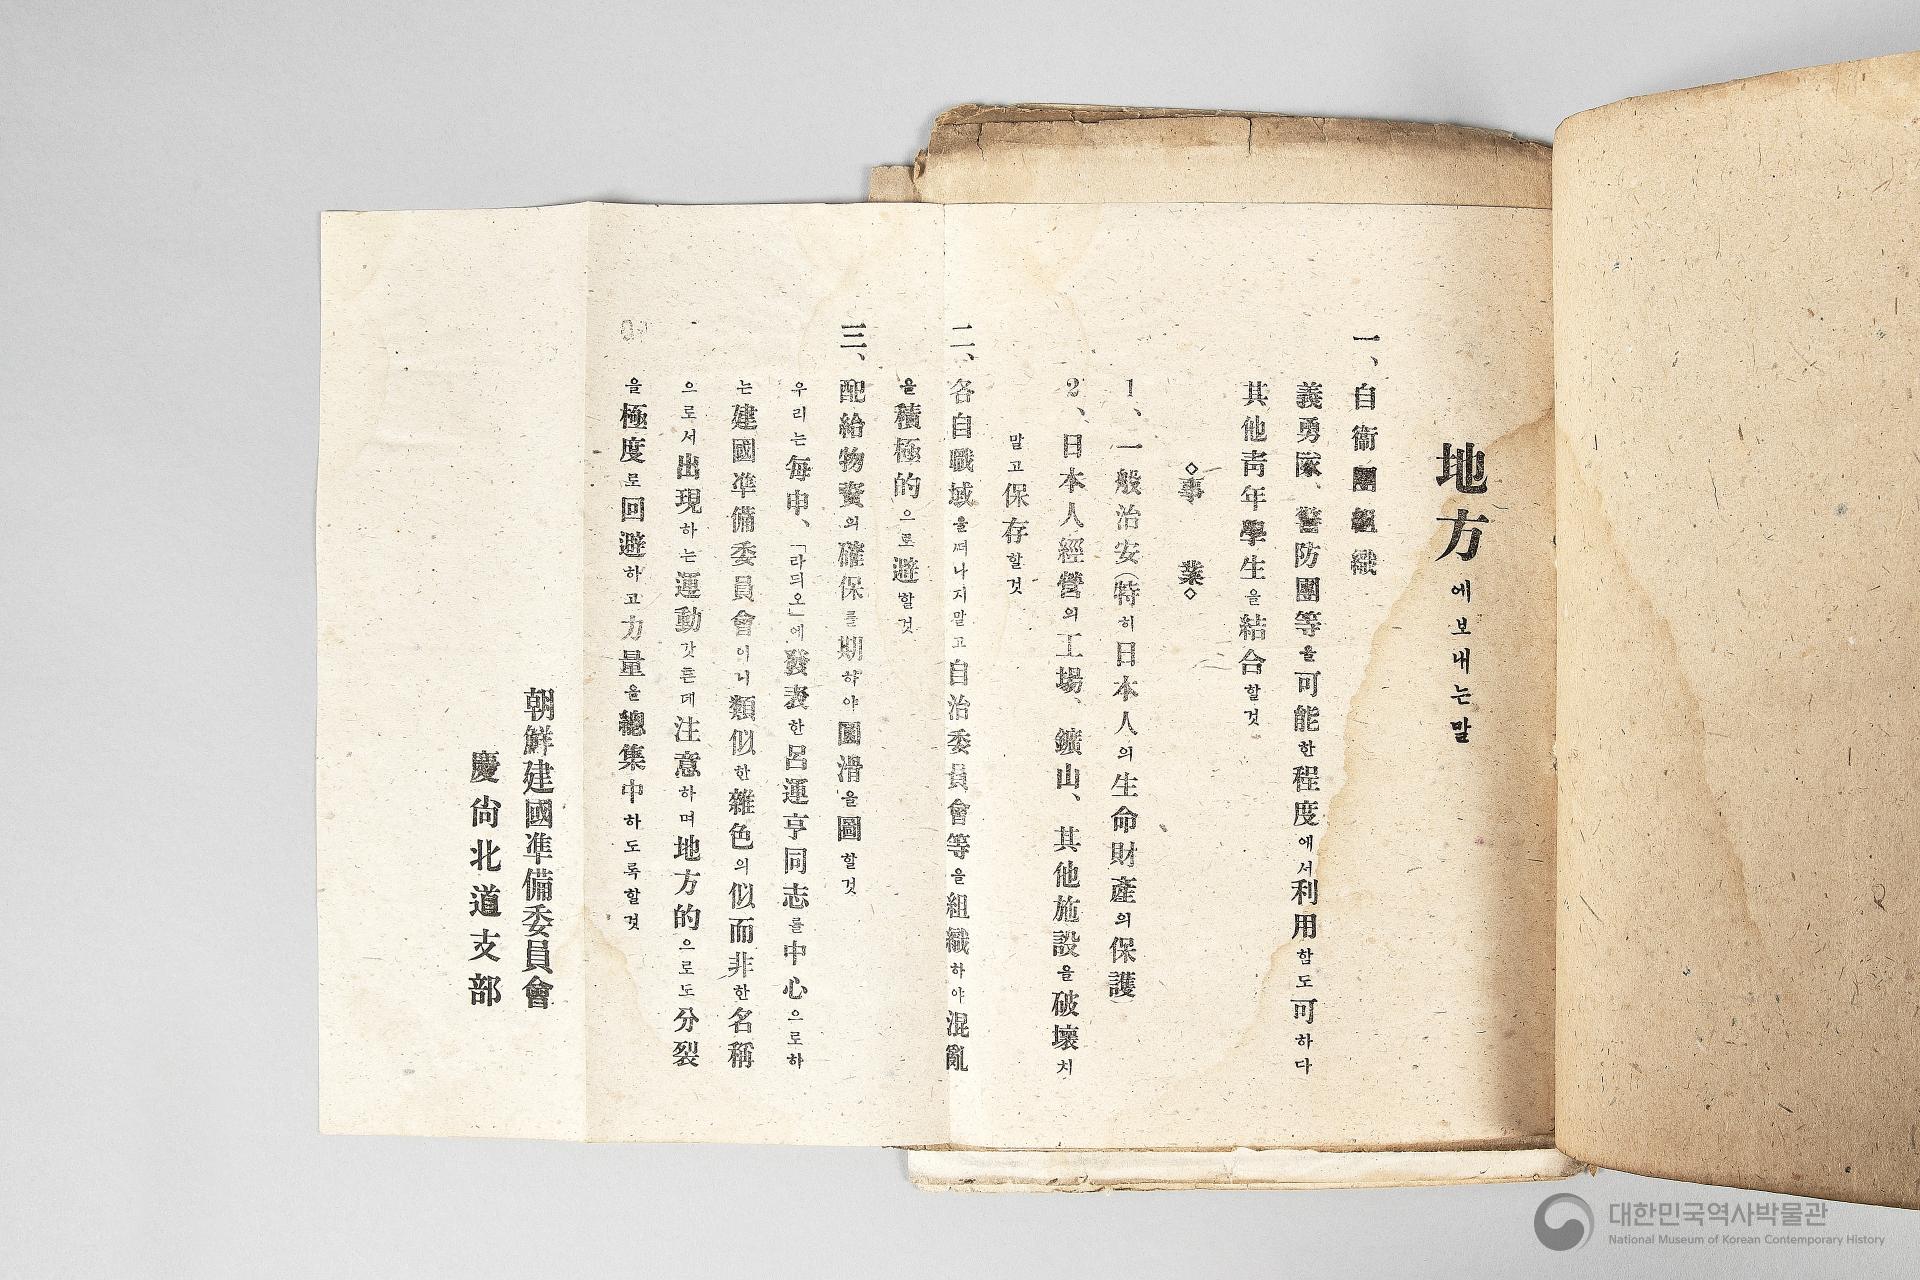 地方에보내는말
一、自衞團組織
義勇隊、警防團等을可能한程度에서利用함도可하다
其他靑年學生을結合할것
◇事業◇
1、一般治安(特히日本人의生命財產의保護)
2、日本人經營의工場、鑛山、其他施設을破壞치
말고保存할것
二、各自職域을떠나지말고自治委員會等을組織하야混亂
을積極的으로避할것
三、配給物資의確保를期하야圓滑을圖할것
우리는每申、「라듸오」에發表한呂運亨同志를中心으로하
는建國準備委員會이니類似한雜色의似而非한名稱
으로서出現하는運動갓흔데注意하며地方的으로도分裂
을極度로回避하고力量을總集中하도록할것
朝鮮建國準備委員會
慶尙北道支部
대한민국역사박물관
National Museum of Korean Contemporary History